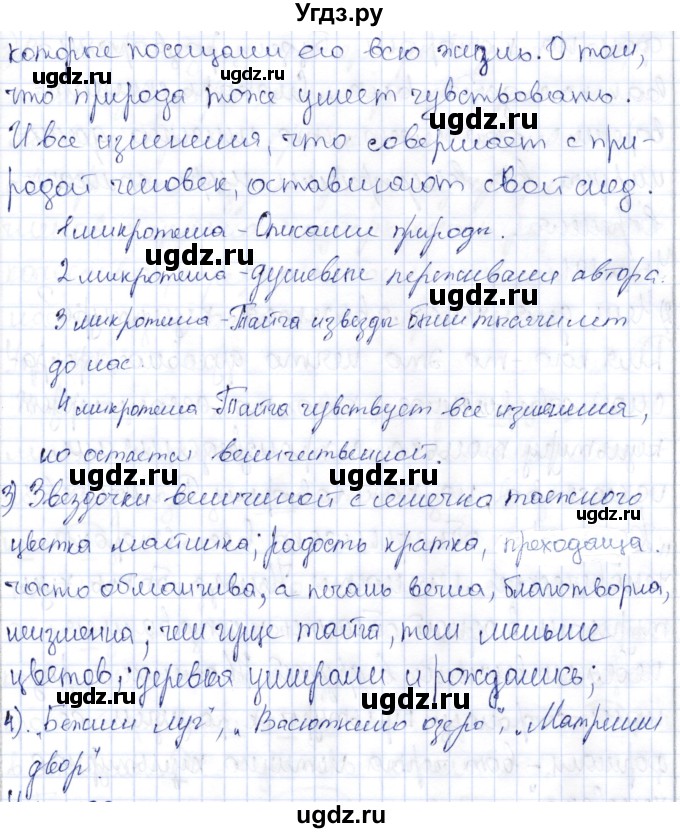 Угдз.ру
которые посещали его всю жизнь. О том,
что природа тоже умеет чувствовать.
ugdz.ru
ugdz.ru
И все изменения, что совершает с при-
родой человек, оставляют свой след.
1 микротема - Описание природы.
ugdz.ru
2 микротема - душевные переживания автора.
ugdz.ru
3 микротема - Тайга и звезды были тысячи лет
до нас.
ugdz.ru
4 микротема - Тайга чувствует все изменения,
но остается величественной.
ugdz.ru
ugdz.ru
3) Звездочки величиной с семечка таежного
ugdz.ru
цветка майника; радость кратка, преходяща
часто обманчива, а печаль вечна, благотворна,
ugdz.ru
неизменна; чем гуще тайга, тем меньше
цветов; деревья умирали и рождались;
ugdz.ru
ugdz.ru
4). „Бежин луг", „Васюткино озеро", „Матренин
двор".
ugdz.ru
ugdz.ru